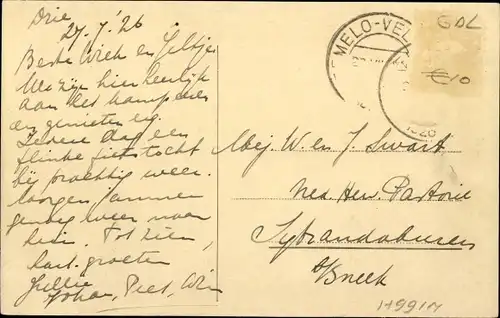 Drie
27-7-'26
Beste Wiek en Jeltje
We zijn hier heerlijk
aan het kampeeren
en genieten erg.
Iedere dag een
flinke fietstocht
bij prachtig weer.
Morgen jammer
genoeg weer naar
huis. Tot ziens,
hart. groeten
Jullie
Johan, Piet, Wim
Mej. W. en J. Swart
Ned. Herv. Pastorie
Sybrandaburen
b/Sneek
RMELO-VEL
1926
GDL
€10
H991M